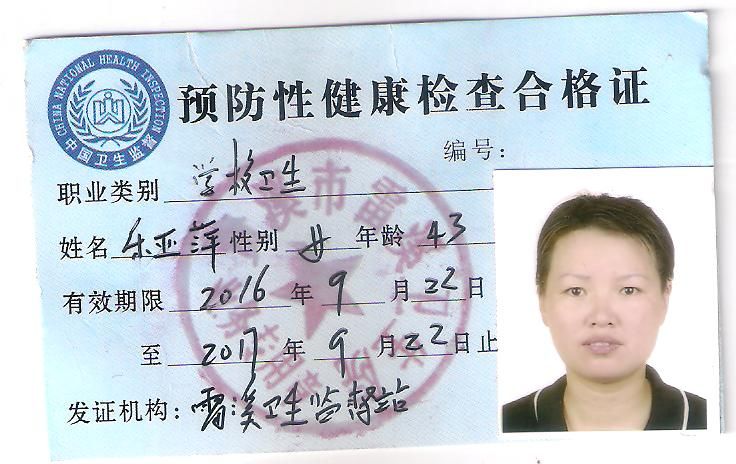 CHINA NATIONAL HEALTH INSPECTION
中国卫生监督
预防性健康检查合格证
编号：
职业类别 学校卫生
姓名 乐亚萍 性别 女 年龄 43
有效期限 2016 年 9 月 22 日
至 2017 年 9 月 22 日止
发证机构：雷溪卫生监督站